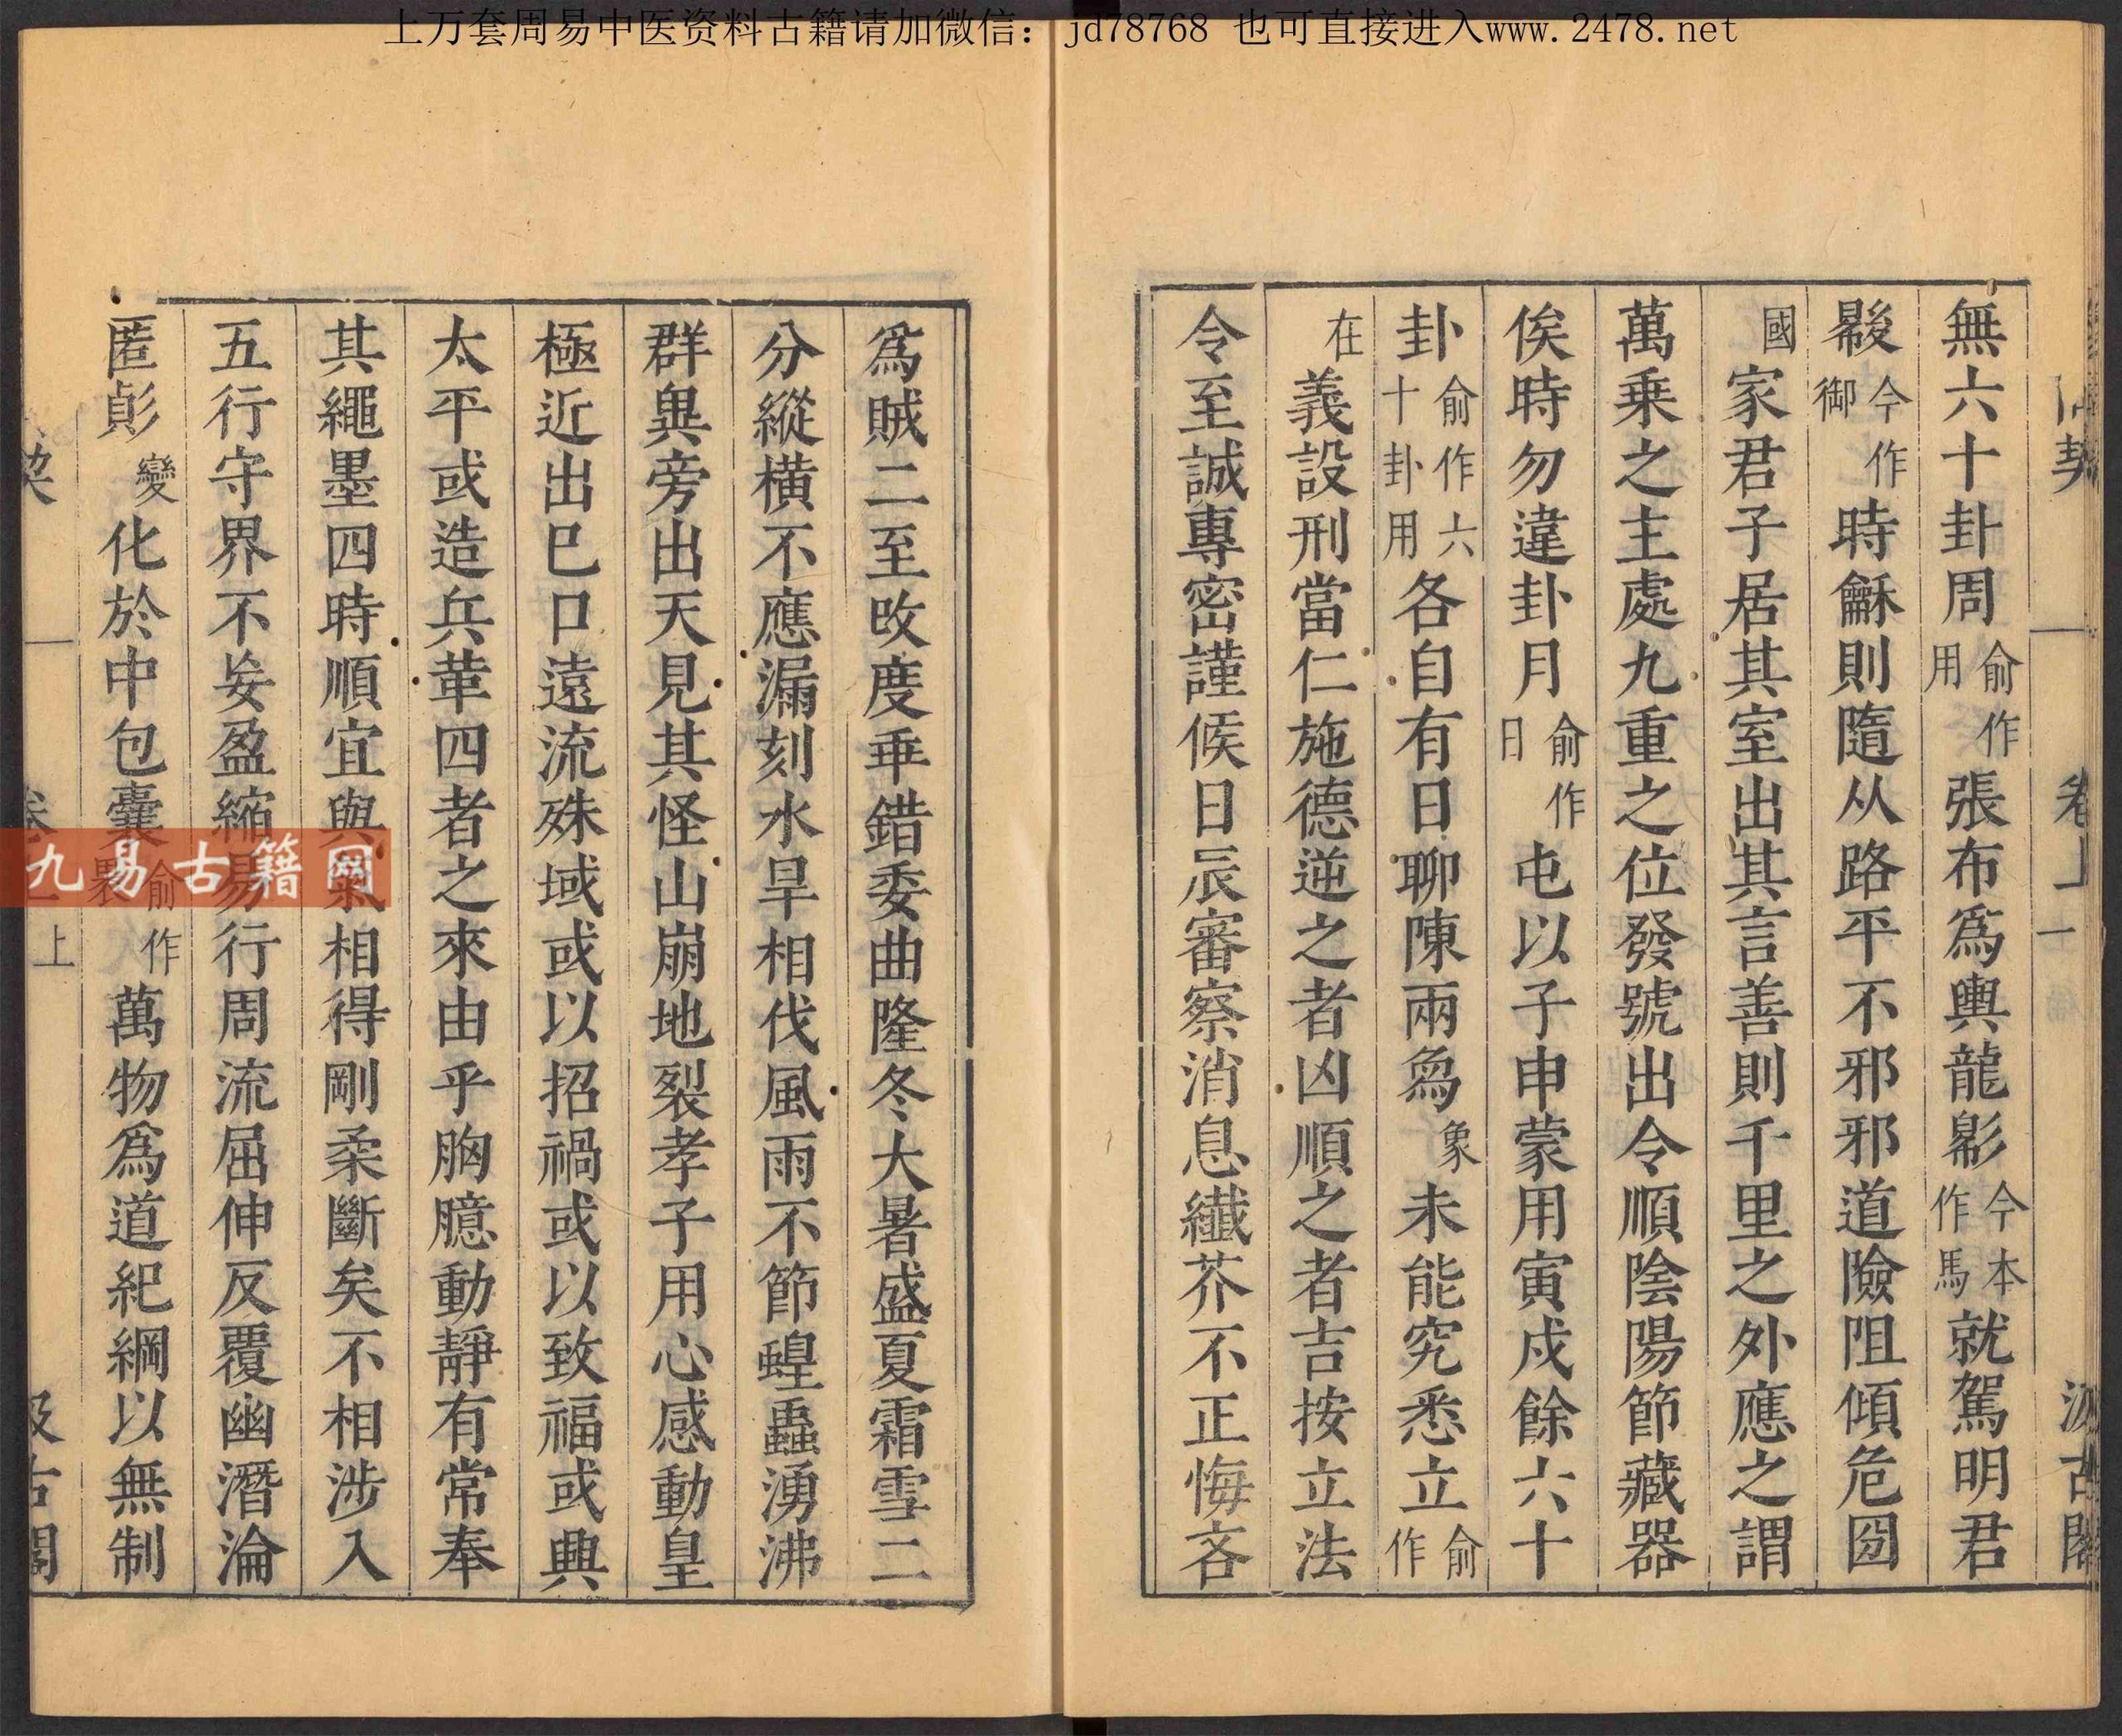 上万套周易中医资料古籍请加微信：jd78768 也可直接进入www.2478.net
契 卷上 一 汲古閣
無六十卦周俞作用張布爲輿龍今本作馬就駕明君
今作御時龢則隨从路平不邪邪道險阻傾危囶
國家君子居其室出其言善則千里之外應之謂
萬乗之主處九重之位發號出令順陰陽節藏器
俟時勿違卦月俞作日屯以子申蒙用寅戍餘六十
卦俞作六十卦用各自有日聊陳兩象未能究悉立俞作
在義設刑當仁施德逆之者凶順之者吉按立法
令至誠專密謹候日辰審察消息纖芥不正悔吝
爲賊二至改度乖錯委曲隆冬大暑盛夏霜雪二
分縱橫不應漏刻水旱相伐風雨不節蝗蟲湧沸
群異旁出天見其怪山崩地裂孝子用心感動皇
極近出巳口遠流殊域或以招禍或以致福或興
太平或造兵革四者之來由乎胸臆動靜有常奉
其繩墨四時順宜與氣相得剛柔斷矣不相涉入
五行守界不妄盈縮易行周流屈伸反覆幽潛淪
匿變化於中包囊俞作裹萬物爲道紀綱以無制
卷上
汲古閣
九易古籍网